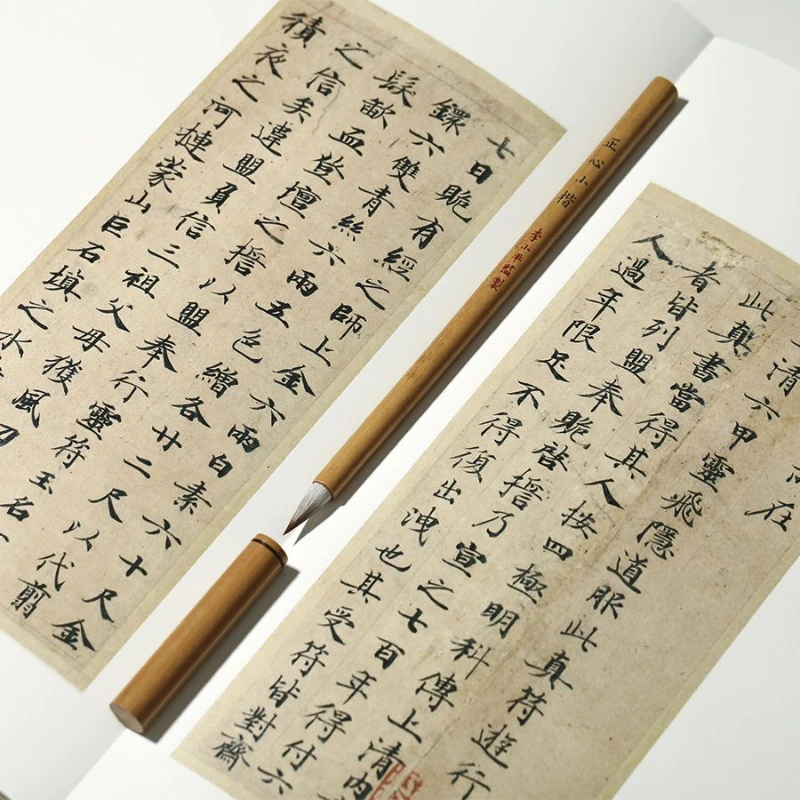 在
清六甲靈飛隱道服此真符遊行
此真書當得其人按四極明科傳上清內
者皆列盟奉脆啓誓乃宣之七百年得付六
人過年限足不得復出洩也其受符皆對齋
正心小楷
李小平監製
七日脆有經之師上金六兩白素六十尺金
鐶六雙青絲六兩五色繒各廿二尺以代翦
髮歃血登壇之誓以盟奉行靈符玉名
之信矣違盟負信三祖父母獲風刀
積夜之河槤蒙山巨石塡之水